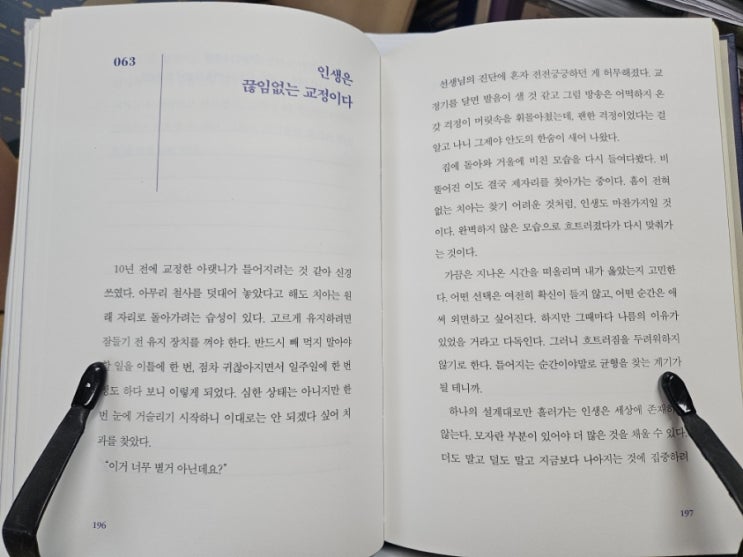 063
인생은
끊임없는 교정이다
10년 전에 교정한 아랫니가 틀어지려는 것 같아 신경
쓰였다. 아무리 철사를 덧대어 놓았다고 해도 치아는 원
래 자리로 돌아가려는 습성이 있다. 고르게 유지하려면
잠들기 전 유지 장치를 껴야 한다. 반드시 빼 먹지 말아야
할 일을 이틀에 한 번, 점차 귀찮아지면서 일주일에 한 번
정도 하다 보니 이렇게 되었다. 심한 상태는 아니지만 한
번 눈에 거슬리기 시작하니 이대로는 안 되겠다 싶어 치
과를 찾았다.
“이거 너무 별거 아닌데요?”
196
선생님의 진단에 혼자 전전긍긍하던 게 허무해졌다. 교
정기를 달면 발음이 샐 것 같고 그럼 방송은 어떡하지 온
갖 걱정이 머릿속을 휘몰아쳤는데, 괜한 걱정이었다는 걸
알고 나니 그제야 안도의 한숨이 새어 나왔다.
집에 돌아와 거울에 비친 모습을 다시 들여다봤다. 비
뚤어진 이도 결국 제자리를 찾아가는 중이다. 흠이 전혀
없는 치아는 찾기 어려운 것처럼, 인생도 마찬가지일 것
이다. 완벽하지 않은 모습으로 흐트러졌다가 다시 맞춰가
는 것이다.
가끔은 지나온 시간을 떠올리며 내가 옳았는지 고민한
다. 어떤 선택은 여전히 확신이 들지 않고, 어떤 순간은 애
써 외면하고 싶어진다. 하지만 그때마다 나름의 이유가
있었을 거라고 다독인다. 그러니 흐트러짐을 두려워하지
않기로 한다. 틀어지는 순간이야말로 균형을 찾는 계기가
될 테니까.
하나의 설계대로만 흘러가는 인생은 세상에 존재하지
않는다. 모자란 부분이 있어야 더 많은 것을 채울 수 있다.
더도 말고 덜도 말고 지금보다 나아지는 것에 집중하려
197